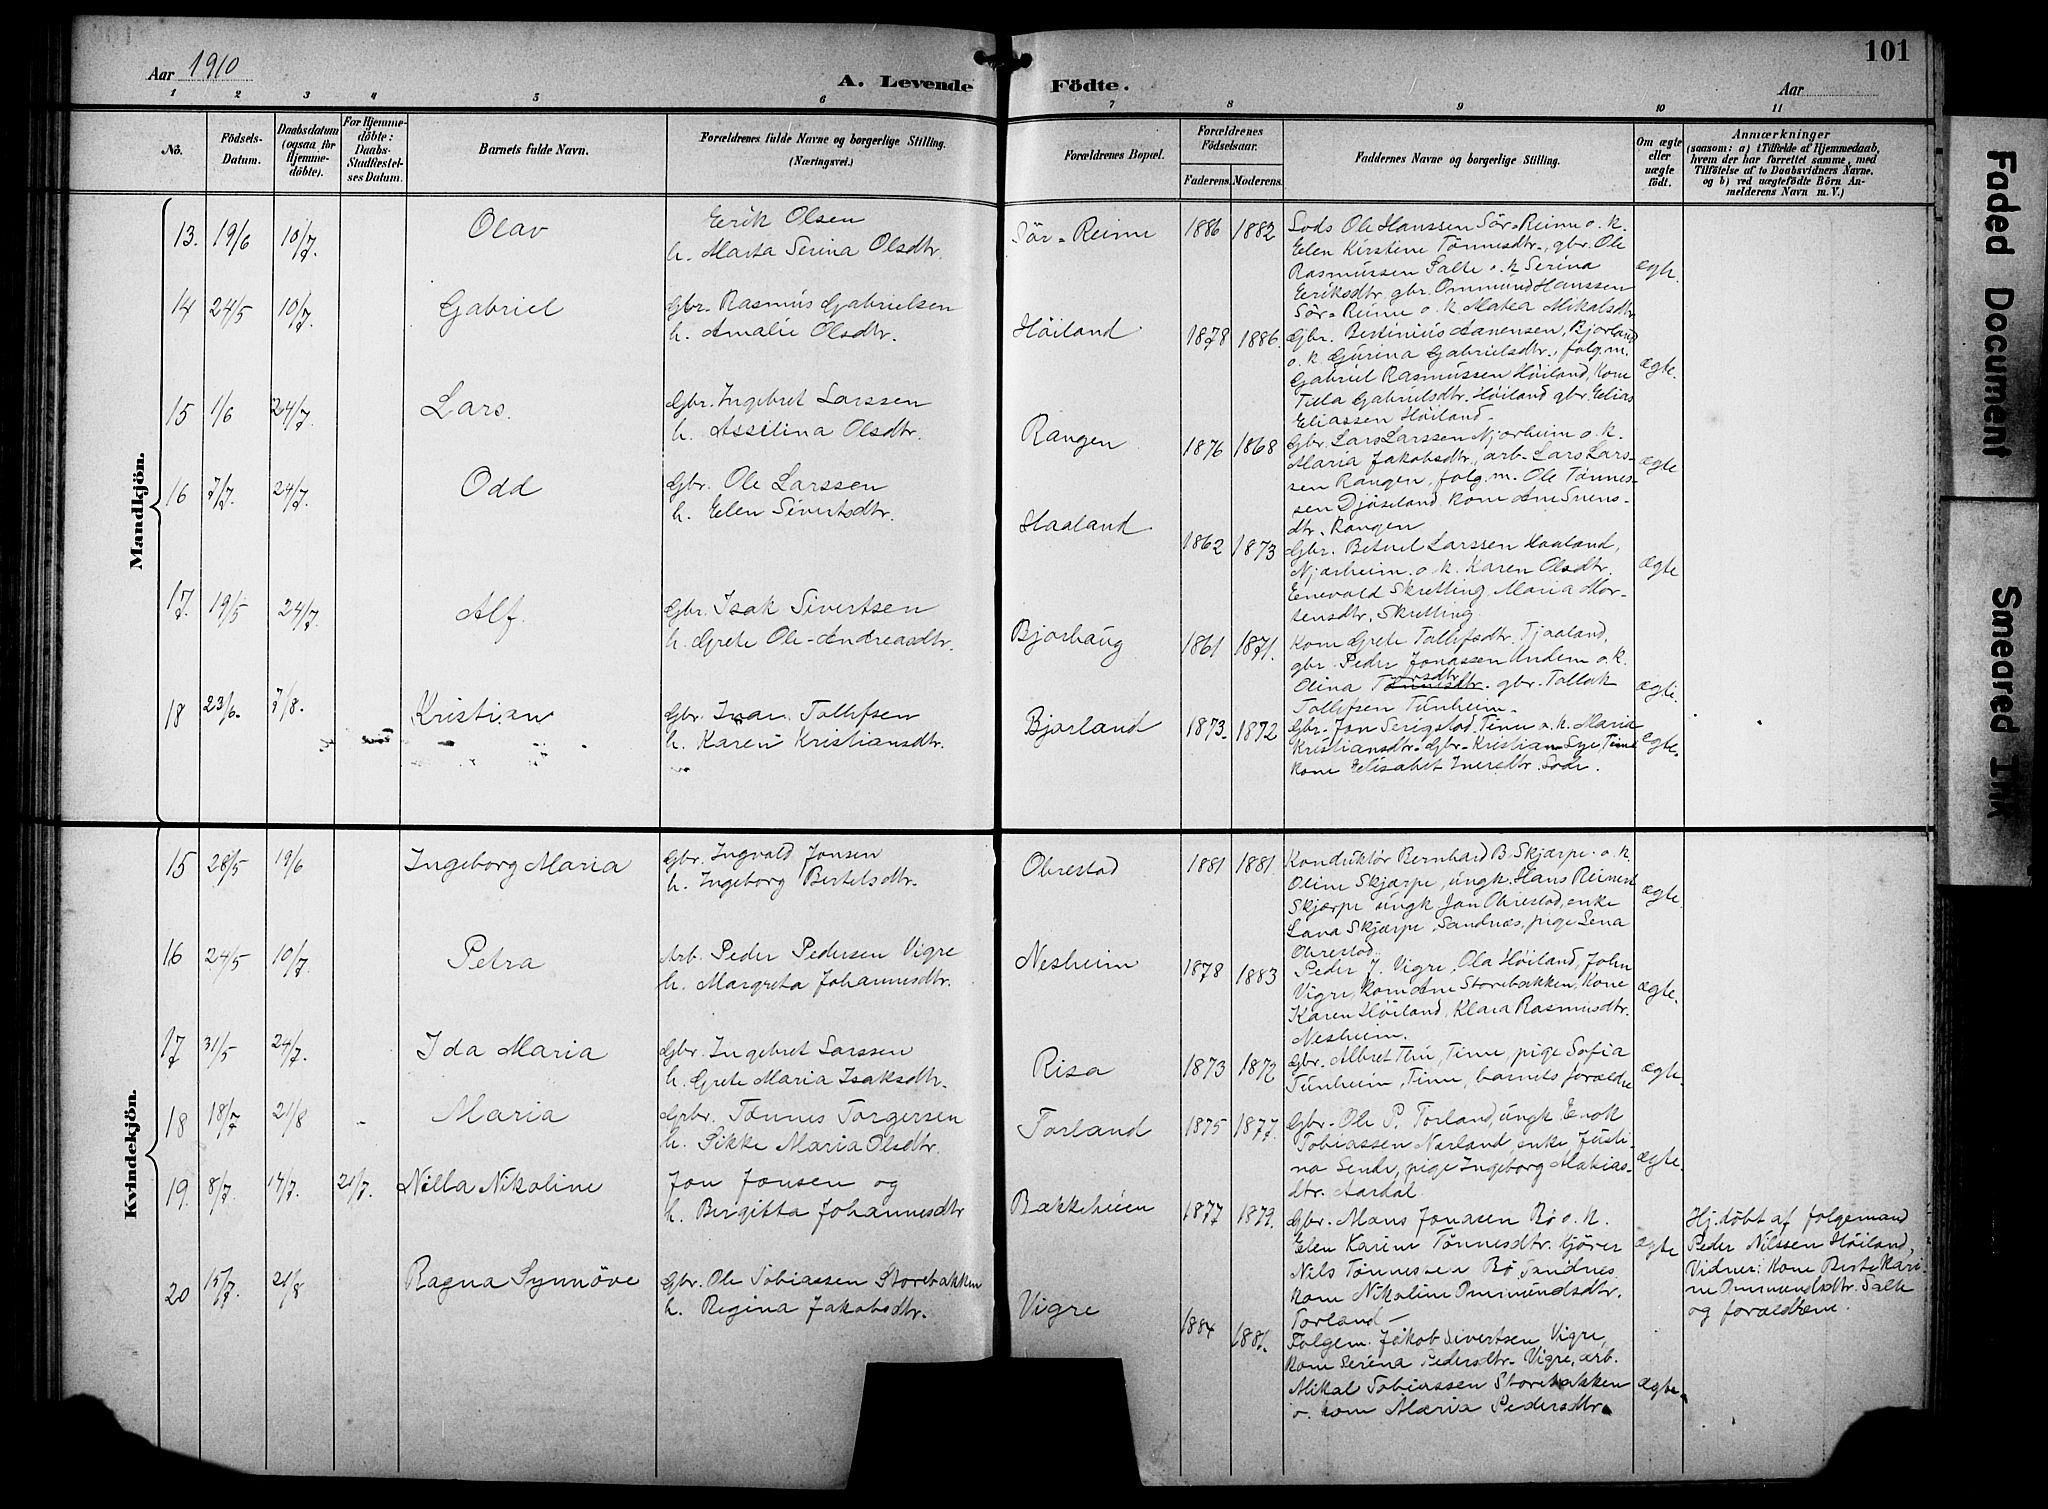 Aar 1910
A. Levende
Födte.
Aar
101
1 2 3 4 5 6 7 8 9 10 11
No.
Födsels-
Datum.
Daabsdatum
(ogsaa for
Hjemme-
döbte).
For Hjemme-
döbte:
Daabs-
Stadfæstel-
ses Datum.
Barnets fulde Navn.
Forældrenes fulde Navne og borgerlige Stilling.
(Næringsvei.)
Forældrenes Bopæl.
Forældrenes
Födselsaar.
Faderens. Moderens.
Faddernes Navne og borgerlige Stilling.
Om ægte
eller
uægte
födt.
Anmærkninger
(saasom: a) i Tilfælde af Hjemmedaab,
hvem der har forrettet samme, med
Tilföielse af to Daabsvidners Navne.
og b) ved uægtefödte Börn An-
melderens Navn m. V.)
Mandkjön.
13. 19/6 10/7. Olav
Eerik Olsen
h. Marta Serina Olsdtr.
Sör-Reime 1886 1882
Lods Ole Hanssen Sör-Reime o. k.
Elen Kirstine Tönnesdtr., gbr. Ole
Rasmussen Salte o. k Serina
Eeriksdtr. gbr. Ommund Hanssen
Sör-Reime o. k. Matea Mikalsdtr
ægte.
14 24/5 10/7. Gabriel
Gbr. Rasmus Gabrielsen
h. Amalie Olsdtr.
Höiland 1878 1886.
Gbr. Bertinius Aanensen, Bjorland
o. k Gurina Gabrielsdtr., folg.m.
Gabriel Rasmussen Höiland, Kone
Tilla Gabrielsdtr. Höiland gbr. Elias
Eliassen Höiland.
ægte.
15 1/6 24/7. Lars.
Gbr. Ingebret Larssen
h. Assilina Olsdtr.
Rangen 1876 1868
Gbr. Lars Larssen Njærheim o. k.
Maria Jakobsdtr., arb. Lars Lars-
sen Rangen, folg. m. Ole Tönnes-
sen Djöseland kone Ane Svens-
dtr. Rangen
ægte
16 7/7. 24/7. Odd
Gbr. Ole Larssen
h. Elen Sivertsdtr.
Haaland 1862 1873
Gbr. Betuel Larssen Haaland,
Njærheim. o. k. Karen Olsdtr.
Enevald Skretting Maria Mor-
tensdtr. Skretting.
ægte
17. 19/5 24/7. Alf.
Gbr. Isak Sivertsen
h. Grete Ole-Andreasdtr.
Bjorhaug 1861 1871.
Kone Grete Tollefsdtr. Tjaaland,
gbr. Peder Jonassen Undem o. k.
Olina Tönnesdtr. gbr. Tollak
Tollefsen Tunheim.
ægte.
18 23/6. 7/8. Kristian
Gbr. Ivar Tollefsen
h. Karen Kristiansdtr.
Bjorland 1873. 1872
Gbr. Jon Serigstad, Time o. k. Maria
Kristiansdtr. Gbr. Kristian Lye, Time
kone Elisabet Iversdtr. Lode.
ægte.
Kvindekjön.
15 28/5 19/6 Ingeborg Maria
Gbr. Ingvald Jonsen
h. Ingeborg Bertelsdtr.
Obrestad 1881 1881
Konduktör Bernhard B. Skjærpe. o. k.
Oline Skjærpe, ungk. Hans Reinert
Skjærpe ungk Jon Obrestad, enke
Lava Skjærpe, Sandnæs, pige Lena
Obrestad.
ægte.
16 24/5 10/7. Petra
Arb. Peder Pedersen Vigre
h. Margreta Johannesdtr.
Nesheim 1878 1883
Peder J. Vigre, Ola Höiland, John
Vigre, kone Ane Storebakken, Kone
Karen Höiland, Klara Rasmusdtr.
Nesheim.
ægte.
17 31/5 24/7. Ida Maria
Gbr. Ingebret Larssen
h. Grete Maria Isaksdtr.
Risa 1873 1872
Gbr. Albret Thu, Time, pige Sofia
Tunheim, Time, barnets forældre
ægte.
18 18/7 21/8 Maria
Grbr. Tönnes Torgersen
h. Sikke Maria Olsdtr.
Torland 1875 1877.
Gbr. Ole P. Torland, ungk Enok
Tobiassen Nærland, enke Justi-
na Sende, pige Ingeborg Matias-
dtr. Aardal.
ægte.
19. 8/7. 17/7. 21/7. Nilla Nikoline
Jon Jonsen og
h. Birgitta Johannesdtr
Bakkeheien 1877 1879.
Gbr. Mons Jonasen Bö o. k.
Elen Karine Tönnesdtr. Kjörer
Nils Tönnessen Bö Sandnes
kone Nikoline Ommundsdtr.
Torland -
ægte
Hj. döbt af folgemand
Peder Nilssen Höiland,
Vidner: Kone Berte Kari-
ne Ommundsdtr. Salte
og forældrene.
20 15/7. 21/8 Ragna Synnöve
Gbr. Ole Tobiassen Storebakken
h. Regina Jakobsdtr.
Vigre 1884 1881.
Folgem. Jakob Sivertsen Vigre,
kone Serena Pedersdtr. Vigre, arb.
Mikal Tobiassen Storebakken
o. kone Maria Pedersdtr.
ægte.
Faded Document
Smeared Ink